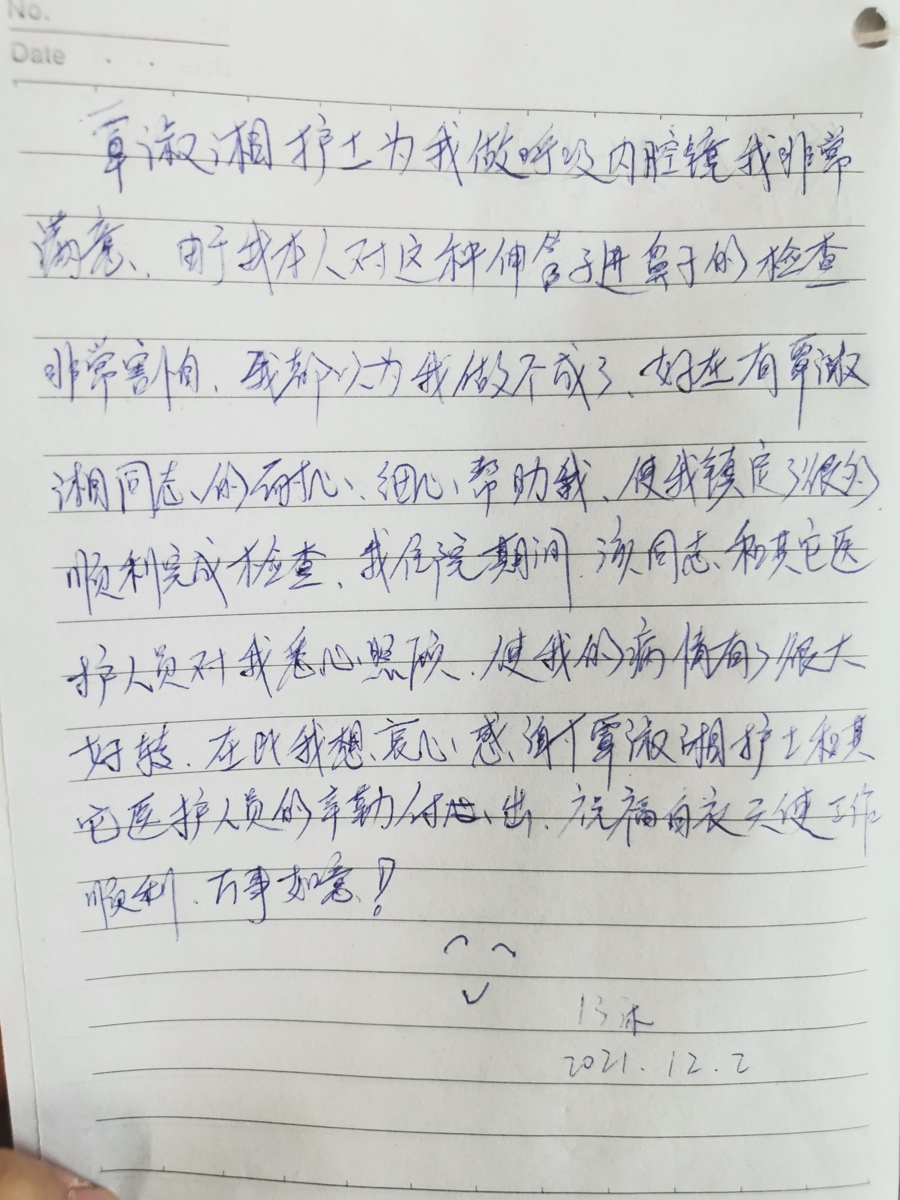 No.
Date
覃淑湘护士为我做呼吸内腔镜我非常
满意、由于我本人对这种伸管子进鼻子的检查
非常害怕、我都以为我做不成了、好在有覃淑
湘同志的耐心、细心帮助我、使我镇定了很多
顺利完成检查、我住院期间.该同志和其它医
护人员对我悉心照顾、使我的病情有了很大
好转、在此我想衷心感谢覃淑湘护士和其
它医护人员的辛勤付出、祝福白衣天使工作
顺利、万事如意!
13床
2021.12.2